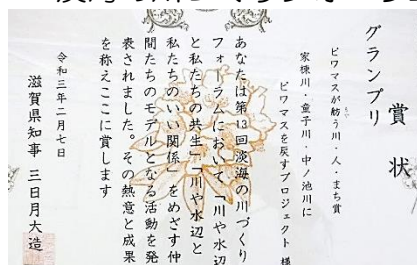 賞状
グランプリ
ビワマスが舫う川・人・まち賞
家棟川・童子川・中ノ池川に
ビワマスを戻すプロジェクト 様
あなたは第13回淡海の川づくり
フォーラムにおいて「川や水辺
と私たちの共生」「川や水辺と
私たちのいい関係」をめざす仲
間たちのモデルとなる活動を発
表されました。その熱意と成果
を称えここに賞します
令和三年二月七日
滋賀県知事 三日月大造